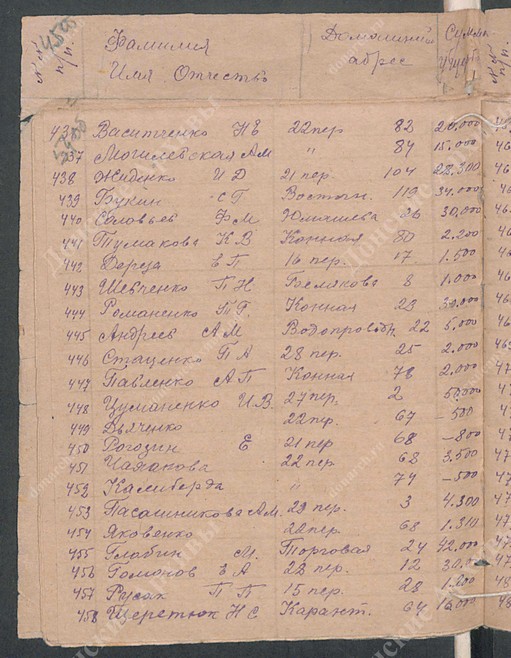 №№ п/п. Фамилия Имя Отчество Домашний адрес Сумма ущерба
436 Васитченко Н Е 22 пер 82 20.000
437 Могилевская А М " 84 15.000
438 Жиденко И Д 21 пер. 104 28.300
439 Букин С Г Восточн. 119 34.000
440 Соловьев Ф М Юмашева 26 30.000
441 Тумакова К В Конная 80 2.200
442 Дереза Е П 16 пер. 17 1.500
443 Шевченко П Н 8 1.000
444 Романенко Т Г. Конная 23
445 Андреев А М Водопроводн 22 5.000
446 Стаценко П А 28 пер. 25 2.000
447 Павленко А П Конная 78 2.000
448 Цуманенко И В. 27 пер. 2 50.000
449 Дьяченко 22 пер. 67 - 500
450 Рогозин Е 21 пер 68 - 800
451 22 пер 68 3.500
452 Калиберда " 74 - 500
453 Пасашникова А М. 23 пер. 3 4.300
454 Яковенко 22 пер. 68 1.310
455 Глабин М. Торговая 24 42.000
456 Гомонов Е А 22 пер. 12
457 Русак П П 15 пер. 28
458 Шеретюк Н С Карант. 64